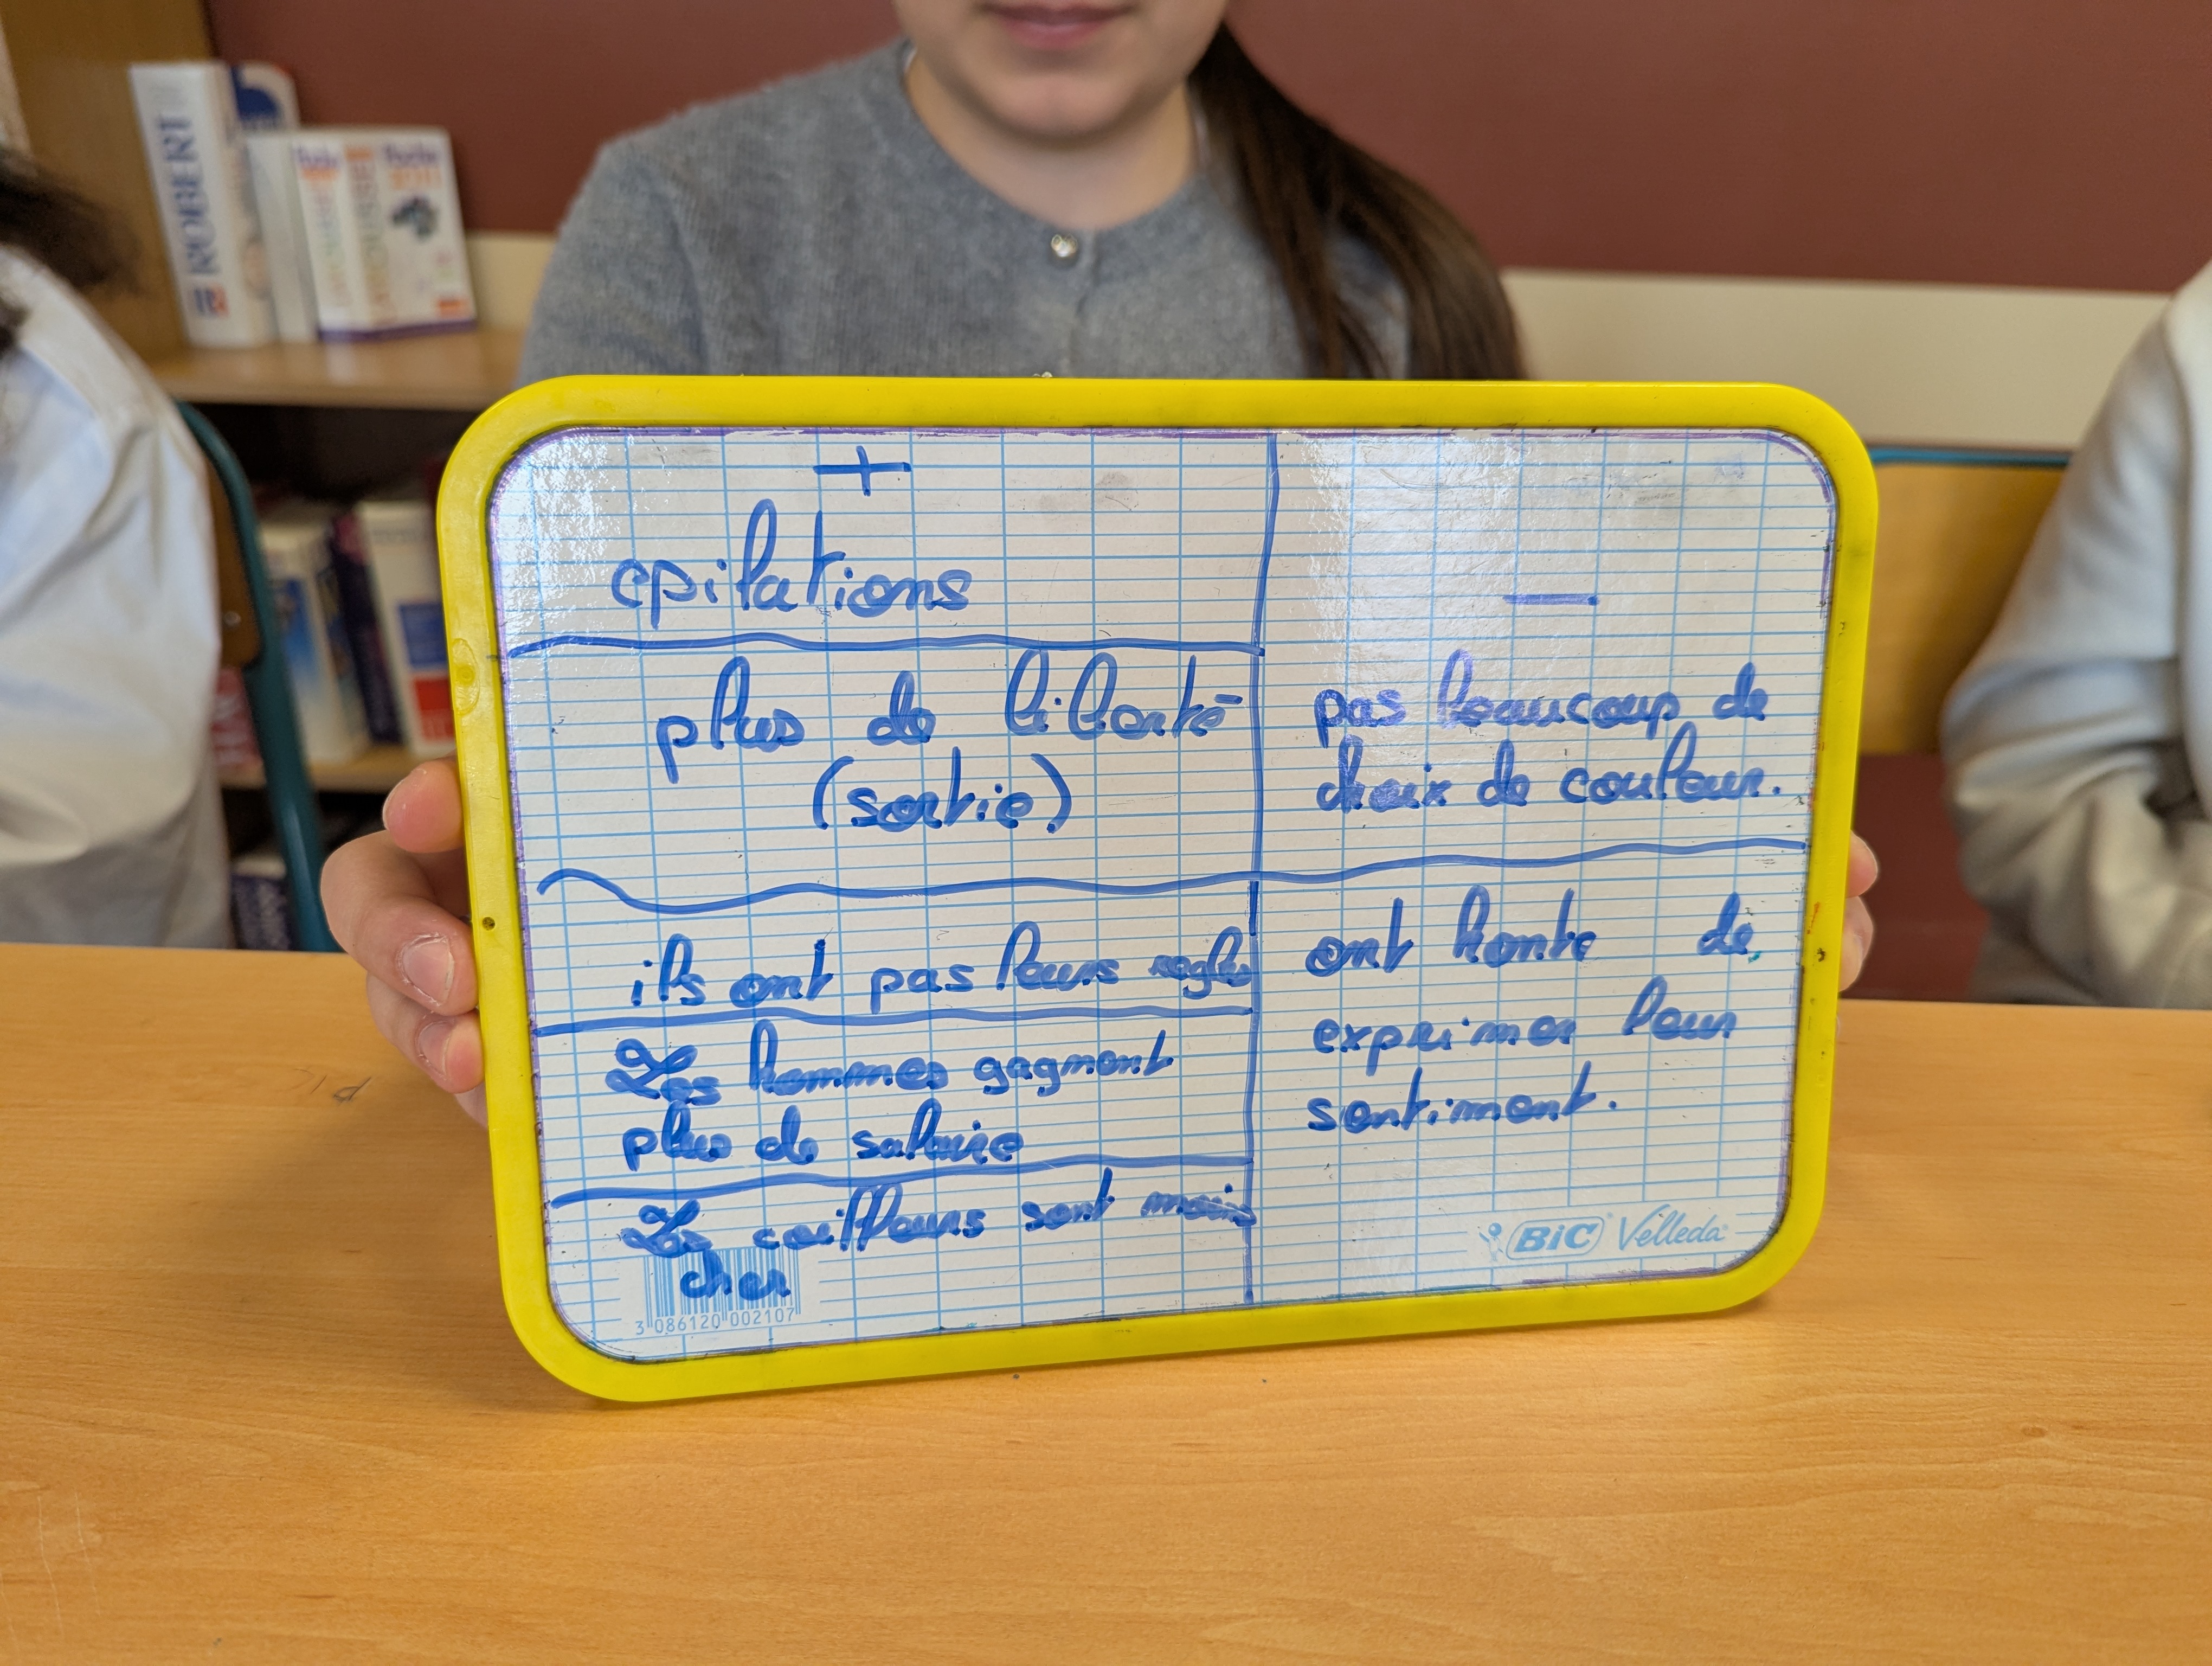 ROBERT
LAROUSSE
+
epilations
plus de liberté
(sortie)
ils ont pas leurs regles
Les hommes gagnent
plus de salaire
Les coiffeurs sont moins
cher
3 086120 002107
—
pas beaucoup de
choix de couleur.
ont honte de
exprimer leur
sentiment.
BiC Velleda